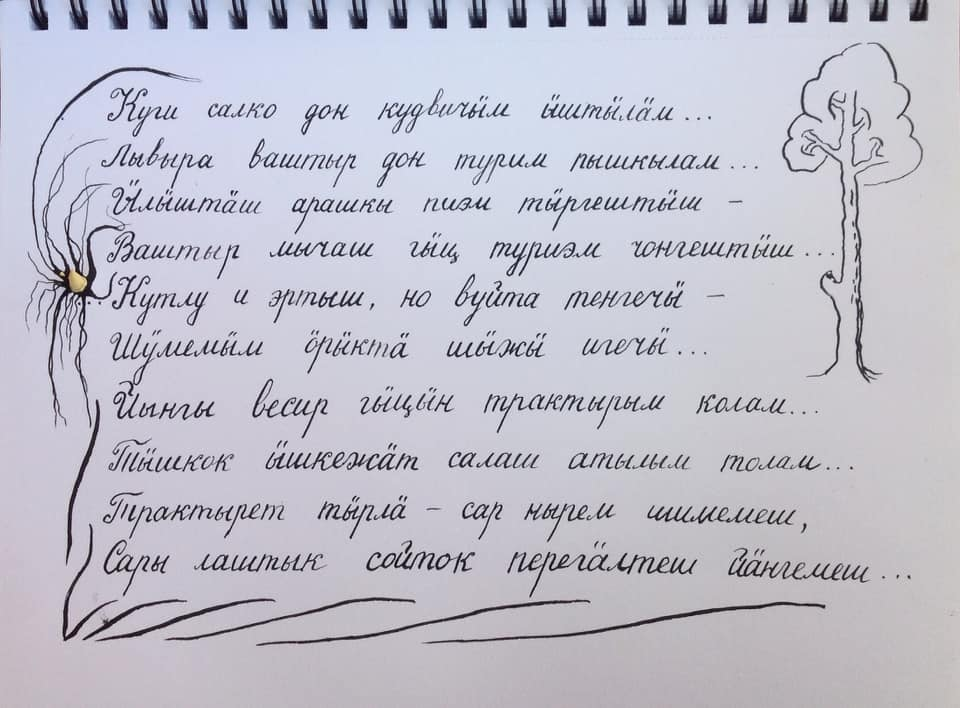 Куги салко дон кудвичӹм ӹштӹлӓм...
Лывыра ваштыр дон турим пышкылам...
Ӹлӹштӓш арашкы пиэм тӹргештӹш –
Ваштыр мычаш гӹц туриэм чонгештӹш...
Кутлу и эртыш, но вуйта тенгечӹ –
Шӱмемӹм ӧрӹктӓ шӹжӹ игечӹ...
Йынгы весир гӹцӹн трактырым колам...
Тӹшкок ӹшкежӓт салаш атылым толам...
Трактырет тӹрлӓ – сар нырем шимемеш,
Сары лаштык сойток перегӓлтеш йӓнгемеш...